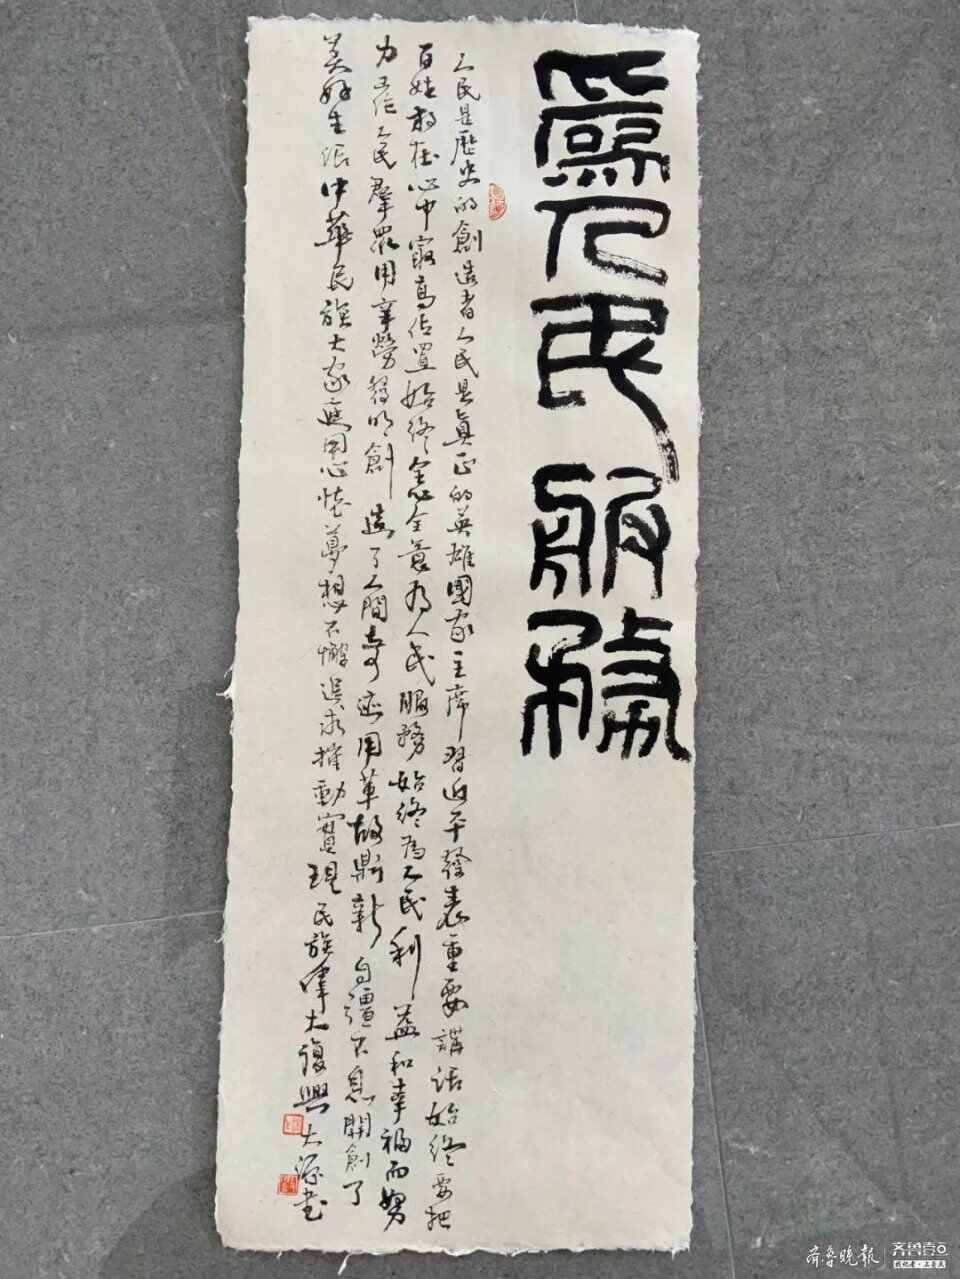 爲人民服務
人民是歷史的創造者人民是真正的英雄國家主席習近平發表重要講話始終要把
百姓放在心中最高位置始終全心全意為人民服務始終為人民利益和幸福而努
力工作人民羣眾用辛勞發明創造了人間奇迹用革故鼎新自彊不息開創了
美好生活中華民族大家庭用心懷夢想不懈追求推動實現民族偉大復興大源书
齐鲁晚报
齐鲁壹点